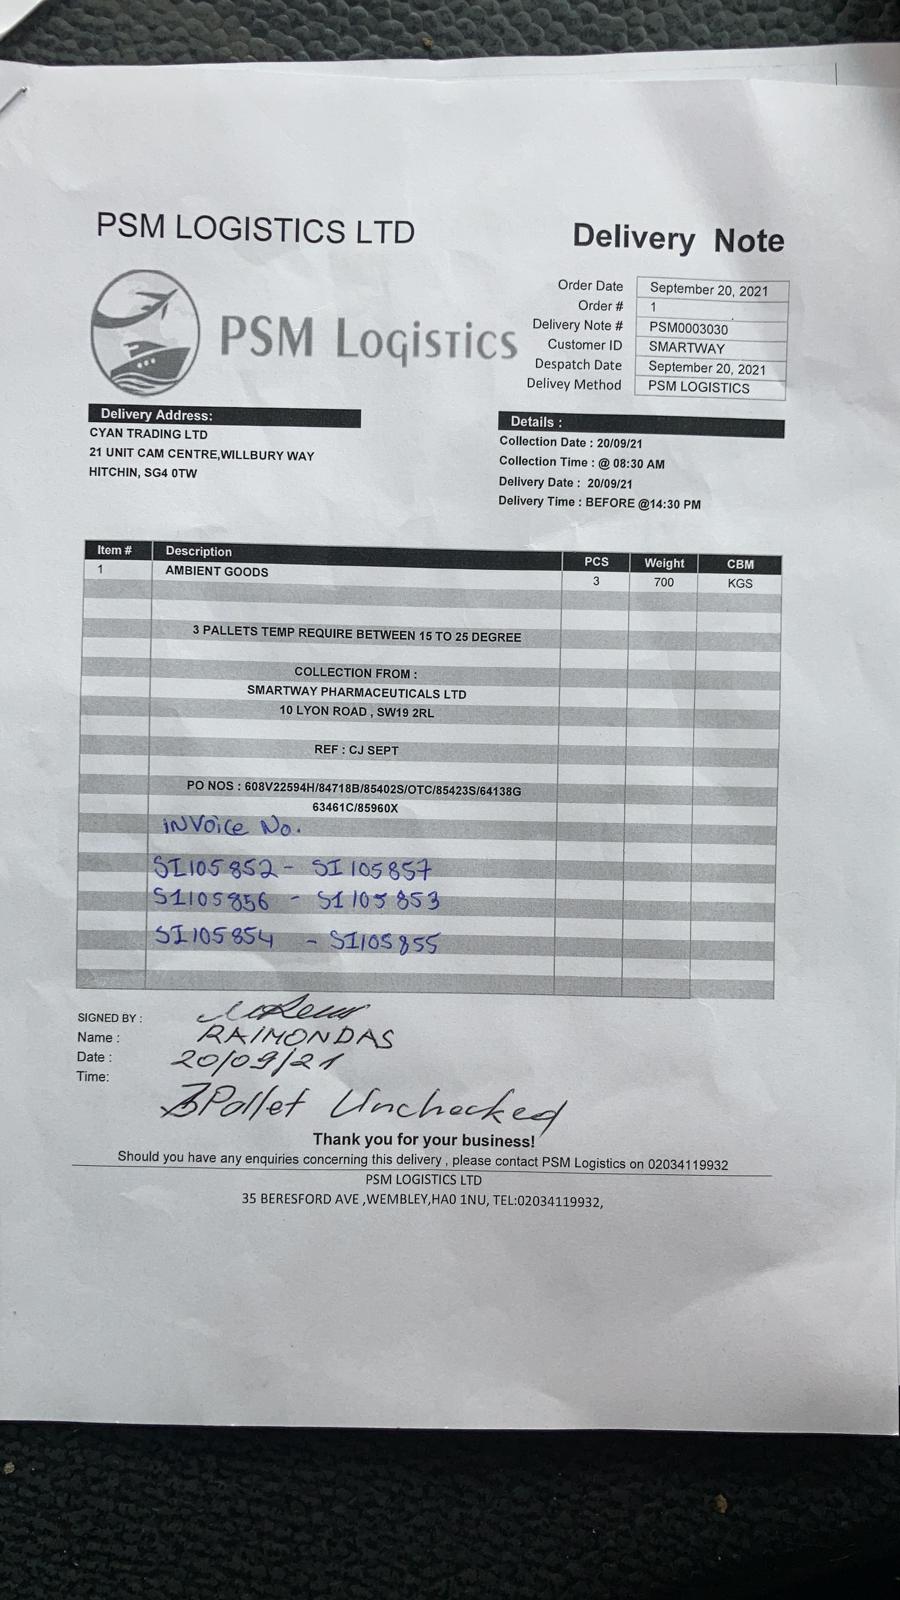 PSM LOGISTICS LTD
Delivery Note
PSM Logistics
Order Date September 20, 2021
Order # 1
Delivery Note # PSM0003030
Customer ID SMARTWAY
Despatch Date September 20, 2021
Delivey Method PSM LOGISTICS
Delivery Address:
CYAN TRADING LTD
21 UNIT CAM CENTRE,WILLBURY WAY
HITCHIN, SG4 0TW
Details :
Collection Date : 20/09/21
Collection Time : @ 08:30 AM
Delivery Date : 20/09/21
Delivery Time : BEFORE @14:30 PM
Item # Description PCS Weight CBM
1 AMBIENT GOODS 3 700 KGS
3 PALLETS TEMP REQUIRE BETWEEN 15 TO 25 DEGREE
COLLECTION FROM :
SMARTWAY PHARMACEUTICALS LTD
10 LYON ROAD , SW19 2RL
REF : CJ SEPT
PO NOS : 608V22594H/84718B/85402S/OTC/85423S/64138G
63461C/85960X
iNVoice No.
SI105852 - SI105857
SI105856 - SI105853
SI105854 - SI105855
SIGNED BY :
Name : RAIMONDAS
Date : 20/09/21
Time:
3Pallet Unchecked
Thank you for your business!
Should you have any enquiries concerning this delivery , please contact PSM Logistics on 02034119932
PSM LOGISTICS LTD
35 BERESFORD AVE ,WEMBLEY,HA0 1NU, TEL:02034119932,